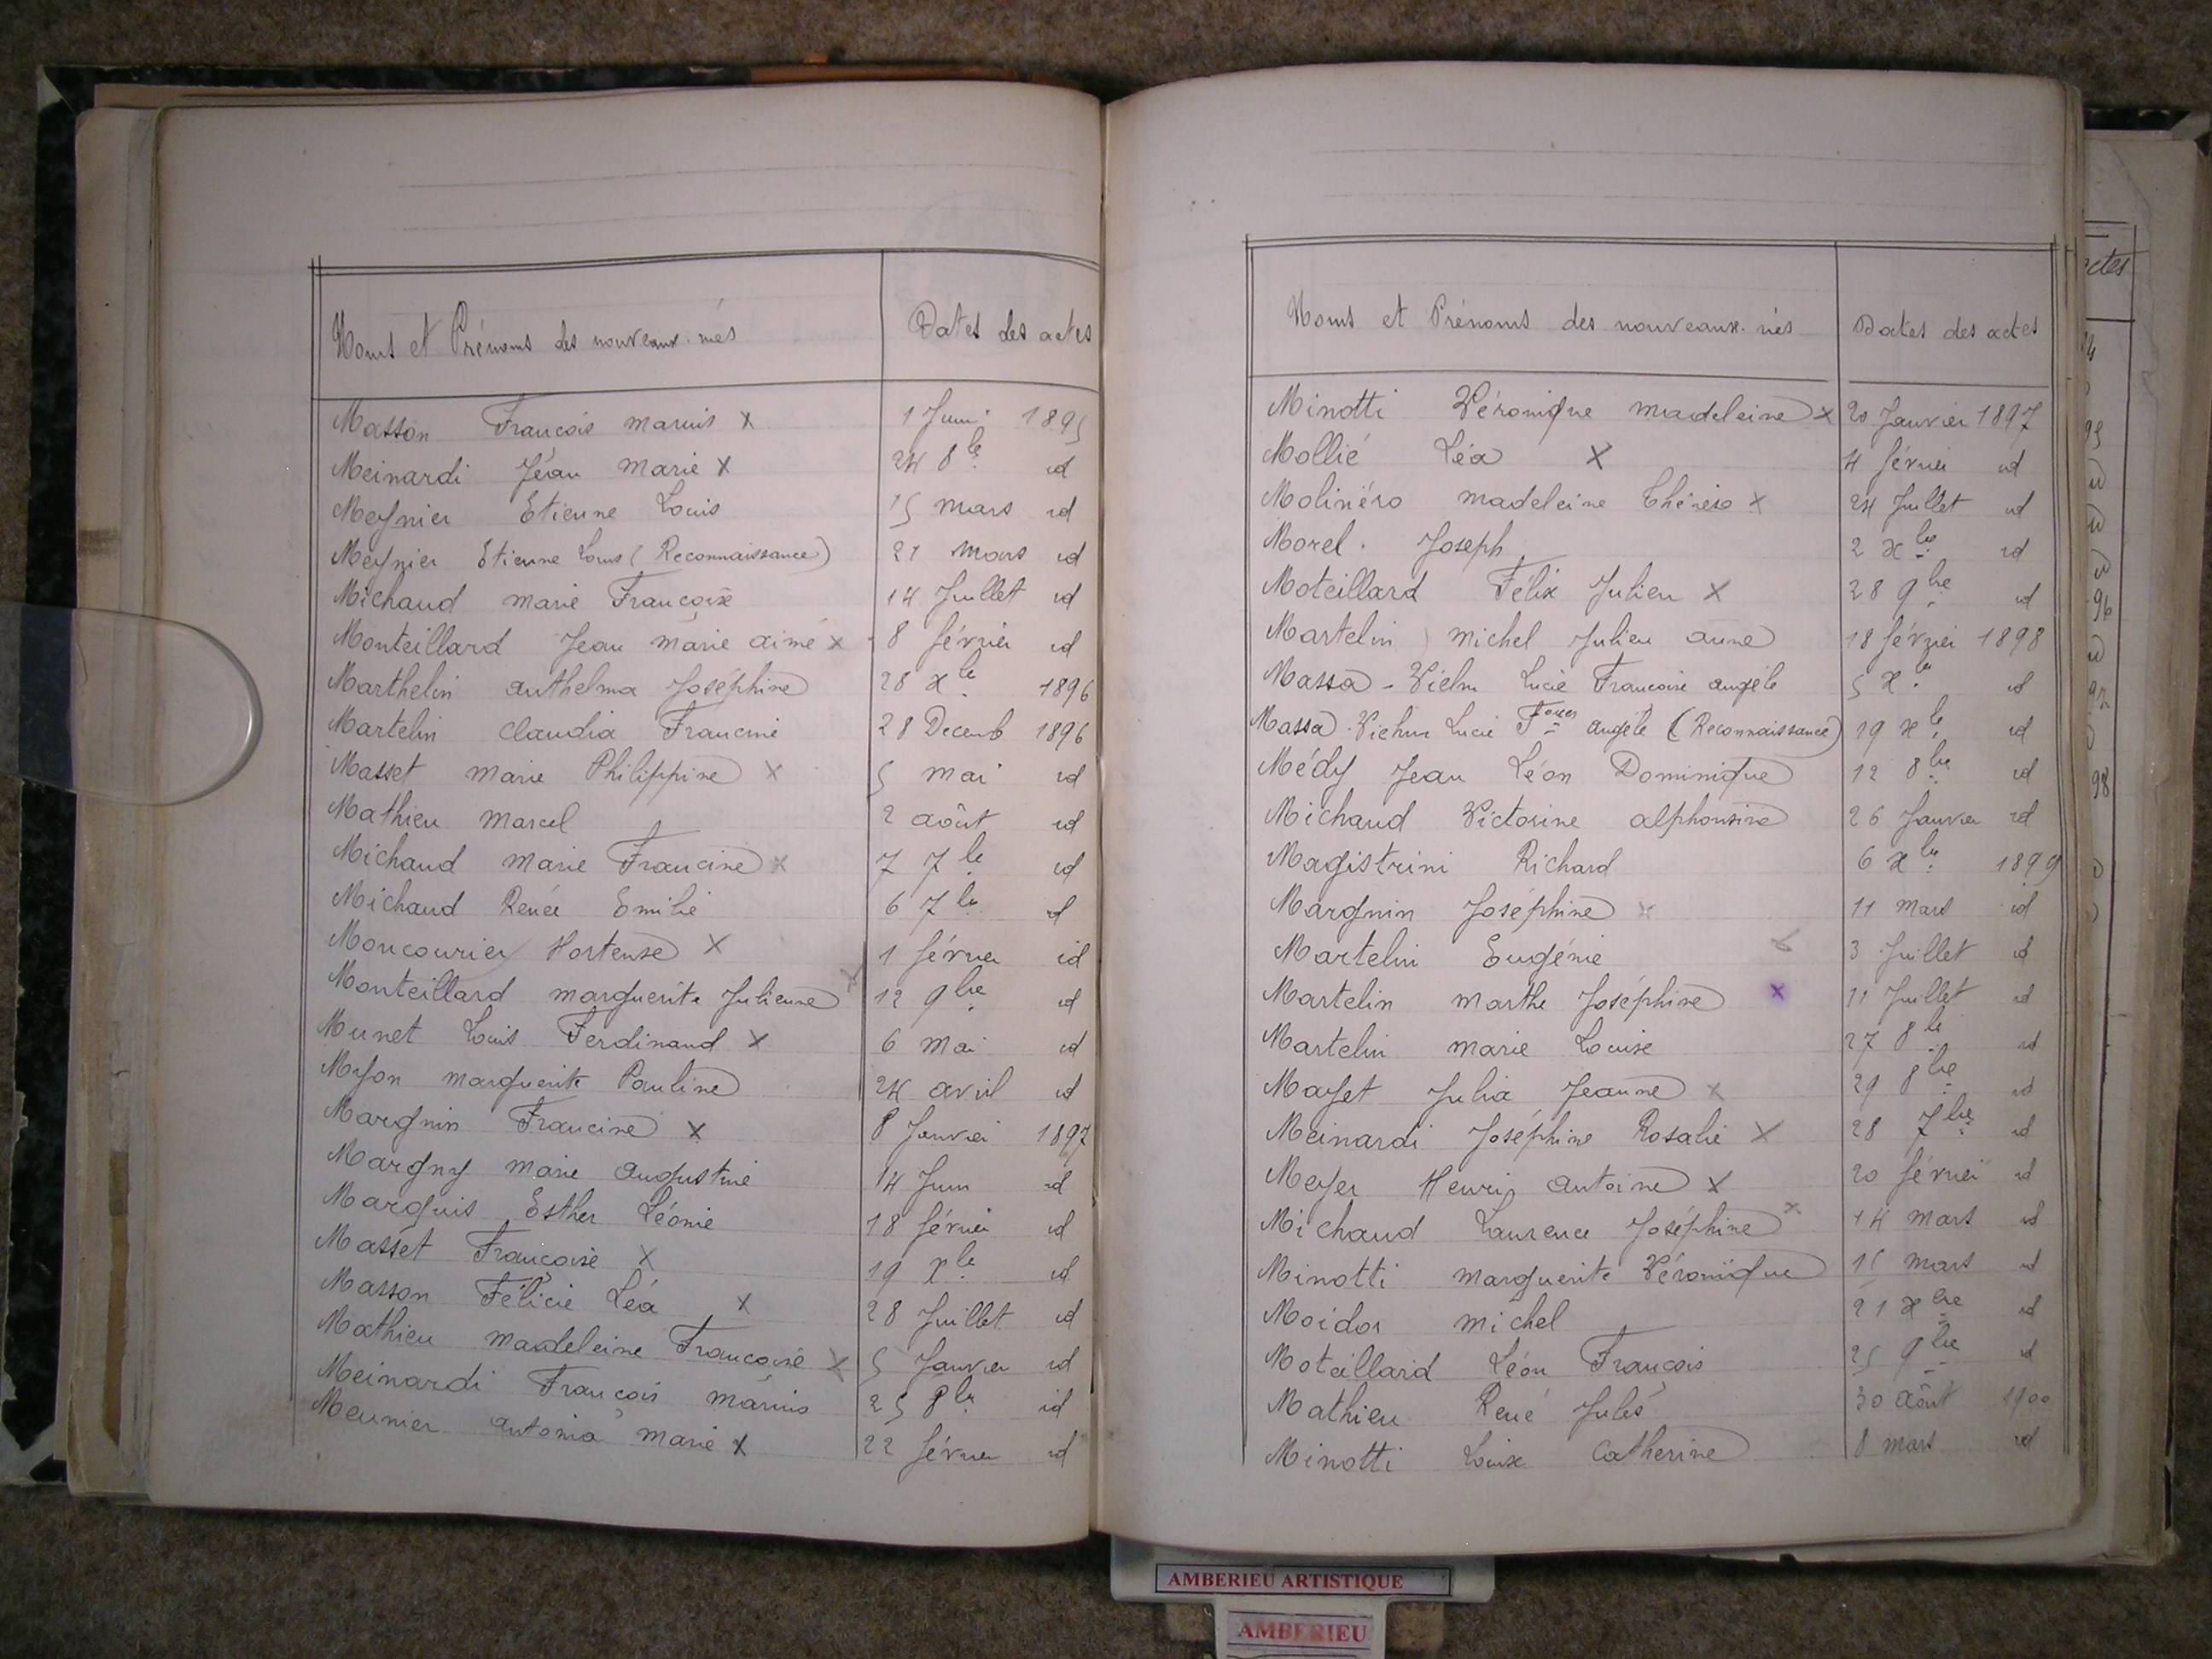 Noms et Prénoms des nouveaux-nés Dates des actes
Masson François marius x 1 Juin 1895
Meinardi Jean Marie x 24 8bre id
Meynier Etienne Louis 15 mars id
Meynier Etienne Louis (Reconnaissance) 21 mars id
Michaud marie Françoise 14 Juillet id
Monteillard Jean marie aimé x 8 février id
Marthelin anthelma Joséphine 28 xbre 1896
Martelin Claudia Francine 28 Decemb 1896
Masset marie Philippine x 5 mai id
Mathieu Marcel 2 août id
Michaud marie Francine x 7 7bre id
Michaud Renée Emilie 6 7bre id
Moncourier Hortense x 1 février id
Monteillard marguerite Julienne x 12 9bre id
Munet Louis Ferdinand x 6 mai id
Myon marguerite Pauline 24 avril id
Margnin Francine x 8 Janvier 1897
Margny marie augustine 14 Juin id
Marquis Esther Léonie 18 février id
Masset Françoise x 19 xbre id
Masson Félicie Léa x 28 Juillet id
Mathieu madeleine Françoise x 5 Janvier id
Meinardi François marius 25 8bre id
Meunier antonia marie x 22 février id
Noms et Prénoms des nouveaux-nés Dates des actes
Minotti Véronique madeleine x 20 Janvier 1897
Mollié Léa x 4 février id
Molinéro madeleine Thérèse x 24 Juillet id
Morel. Joseph 2 xbre id
Moteillard Félix Julien x 28 9bre id
Martelin michel Julien anne 18 février 1898
Massa - Vielm Lucie Françoise angèle 5 xbre id
Massa - Vielm Lucie Foise angèle (Reconnaissance) 19 xbre id
Médy Jean Léon Dominique 12 8bre id
Michaud Victorine alphonsine 26 Janvier id
Magistrini Richard 6 xbre 1899
Margnin Joséphine x 11 mars id
Martelin Eugénie 3 Juillet id
Martelin marthe Joséphine x 11 Juillet id
Martelin marie Louise 27 8bre id
Mayet Julia Jeanne x 29 8bre id
Meinardi Joséphine Rosalie x 28 7bre id
Meyer Henri antoine x 20 février id
Michaud Laurence Joséphine x 14 mars id
Minotti marguerite Véronique 15 mars id
Moidor michel 21 xbre id
Moteillard Léon François 25 9bre id
Mathieu René Jules 30 août 1900
Minotti Louise Catherine 8 mars id
actes
98
AMBERIEU ARTISTIQUE
AMBERIEU